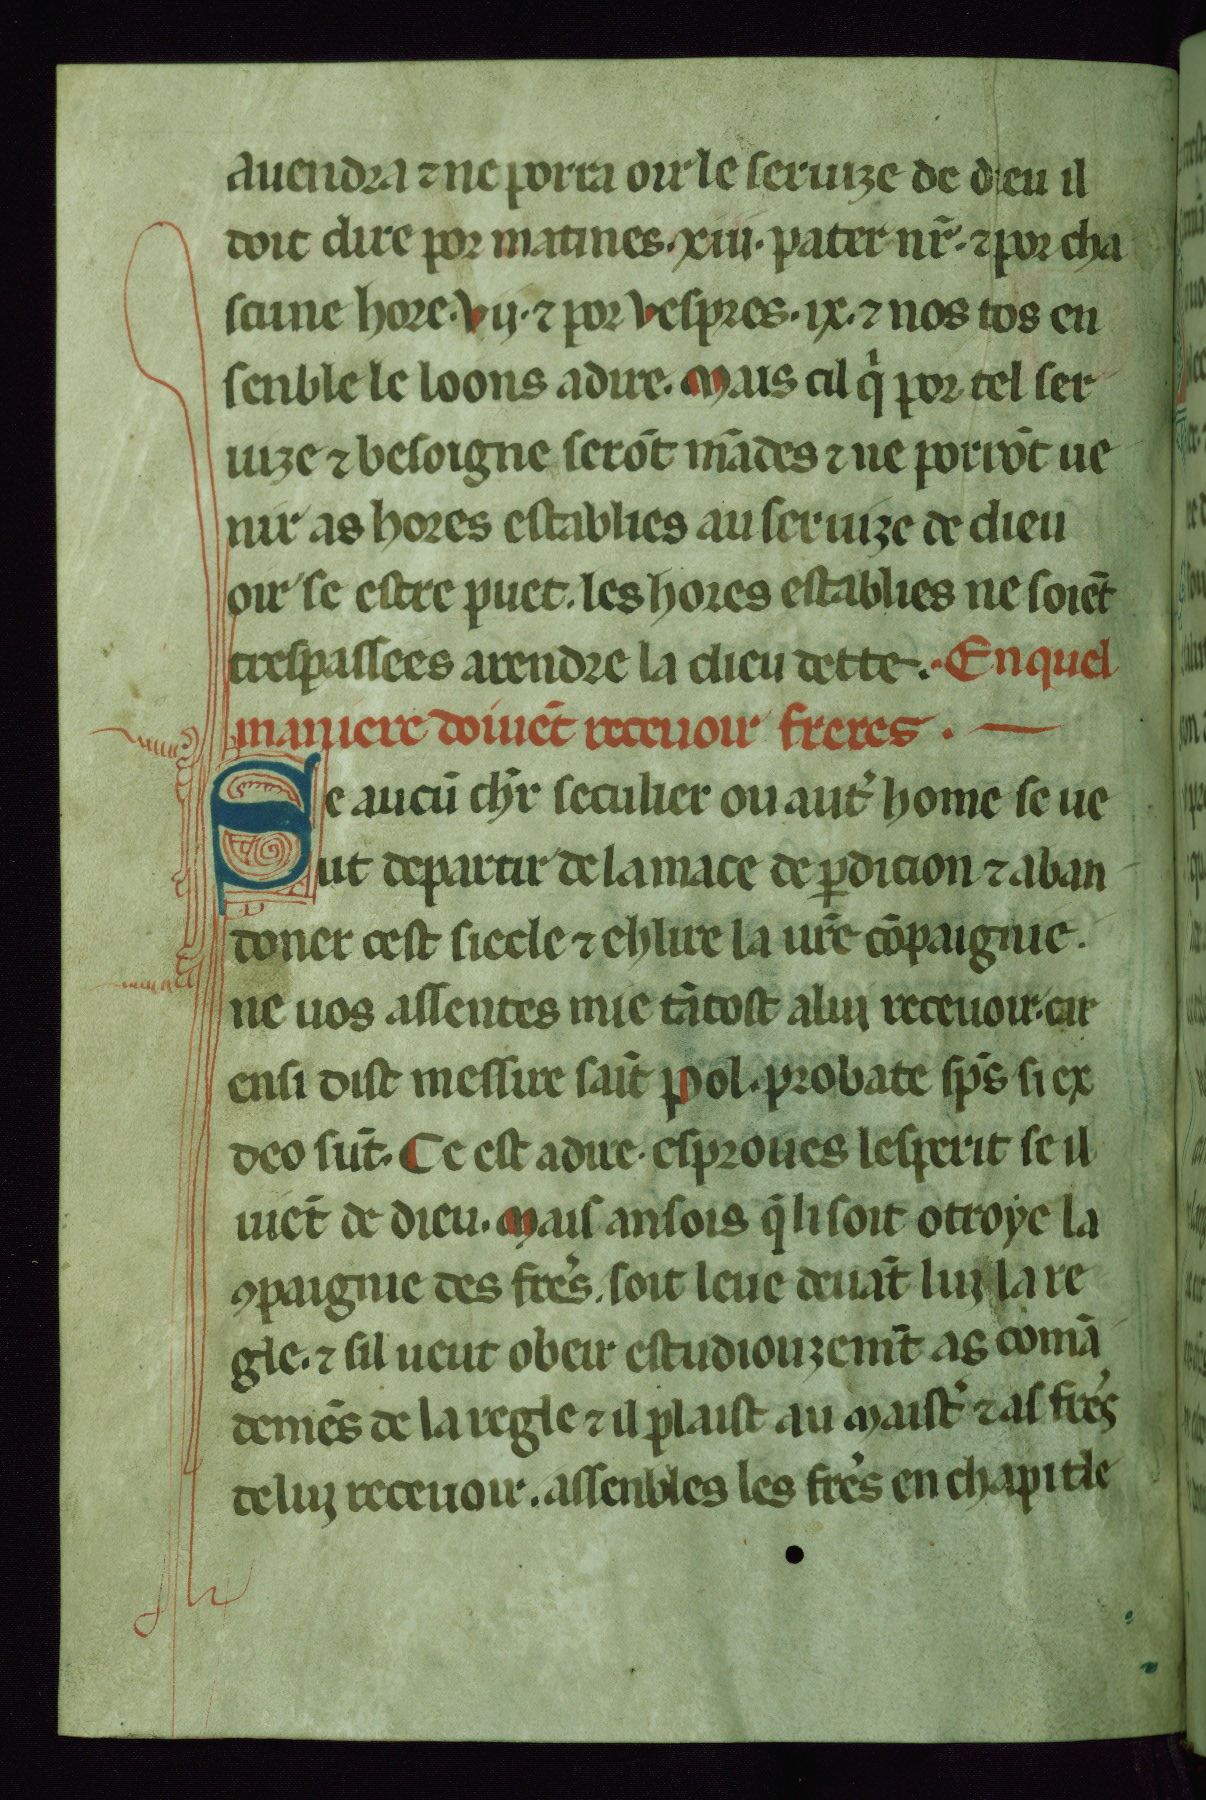 auendra ⁊ ne porra oir le seruize de dieu il
doit dire por matines .xiii. pater nr̄. ⁊ por cha
scune hore .vij. ⁊ por vespres .ix. ⁊ nos tos en
senble le loons a dire. Mais cil q̇ por tel ser
uize ⁊ besoigne serōt mādes ⁊ ne porrōt ue
nir as hores establies au seruize de dieu
oir se estre puet. les hores establies ne soiēt
trespassees a rendre la dieu dette. En quel
maniere doiuēt receuoir freres.
Se aucū chr̄ seculier ou autʾ home se ue
ut departir de la mace de ꝑdicion ⁊ aban
doner cest siecle ⁊ ehlire la ur̄e cōpaignie.
ne uos assentes mie tātost a luj receuoir. car
ensi dist messire sait̄ Pol. probate sp̄s si ex
deo sūt. Ce est a dire. esproues lesperit se il
uiēt de dieu. Mais ansois q̄ li soit otroye la
ꝯpaignie des freʾs. soit leue deuāt luj la re
gle. ⁊ sil ueut obeir estudiouzemt̄ as comā
demēs de la regle ⁊ il plaist au Maistʾ ⁊ as freʾs
de luj receuoir. assenbles les freʾs en chapitle